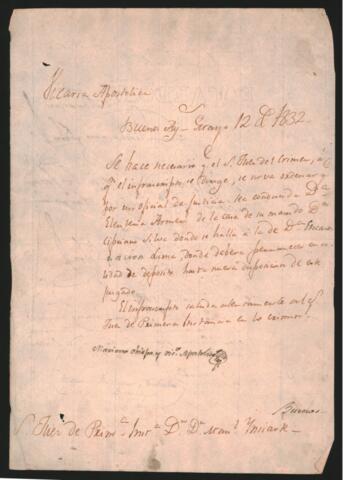 Vicaria Apostolica
Buenos Ay. Mayo 12 de 1832
Se hace necesario q. el S. Juez del Crimen, á
q. el infraescripto se dirige, se sirva ordenar q.
por un oficial de Justicia, se conduzca Da
de la casa de su marido Dn
Cipriano Silva donde se halla á la de Dn
Lima, donde debera permanecer en ca
lidad de deposito hasta nueva disposicion de este
Juzgado.
El infraescripto saluda atentamente al S.
Juez de Primera Instancia en lo criminal.
Mariano Obispo y Vic. Apostolico
Buenos
S. Juez de Prim. Inst. a Dn Dn Man. Ynsiarte